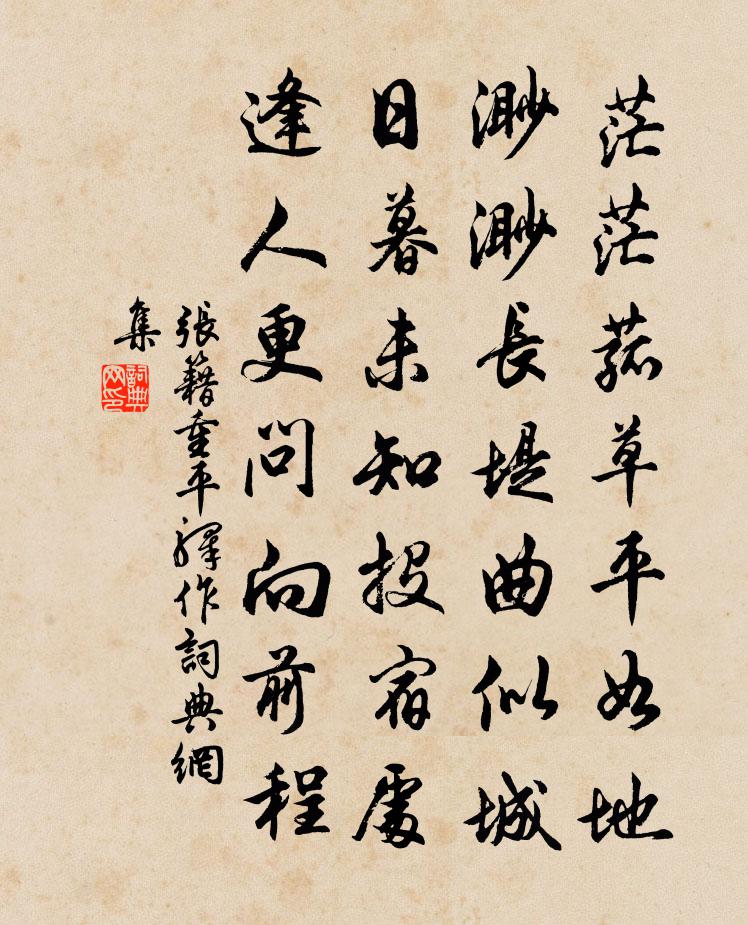 茫茫菰草平如地
渺渺長堤曲似城
日暮未知投宿處
逢人更問向前程
張籍重平驛作詞典網
集
詞典
网印